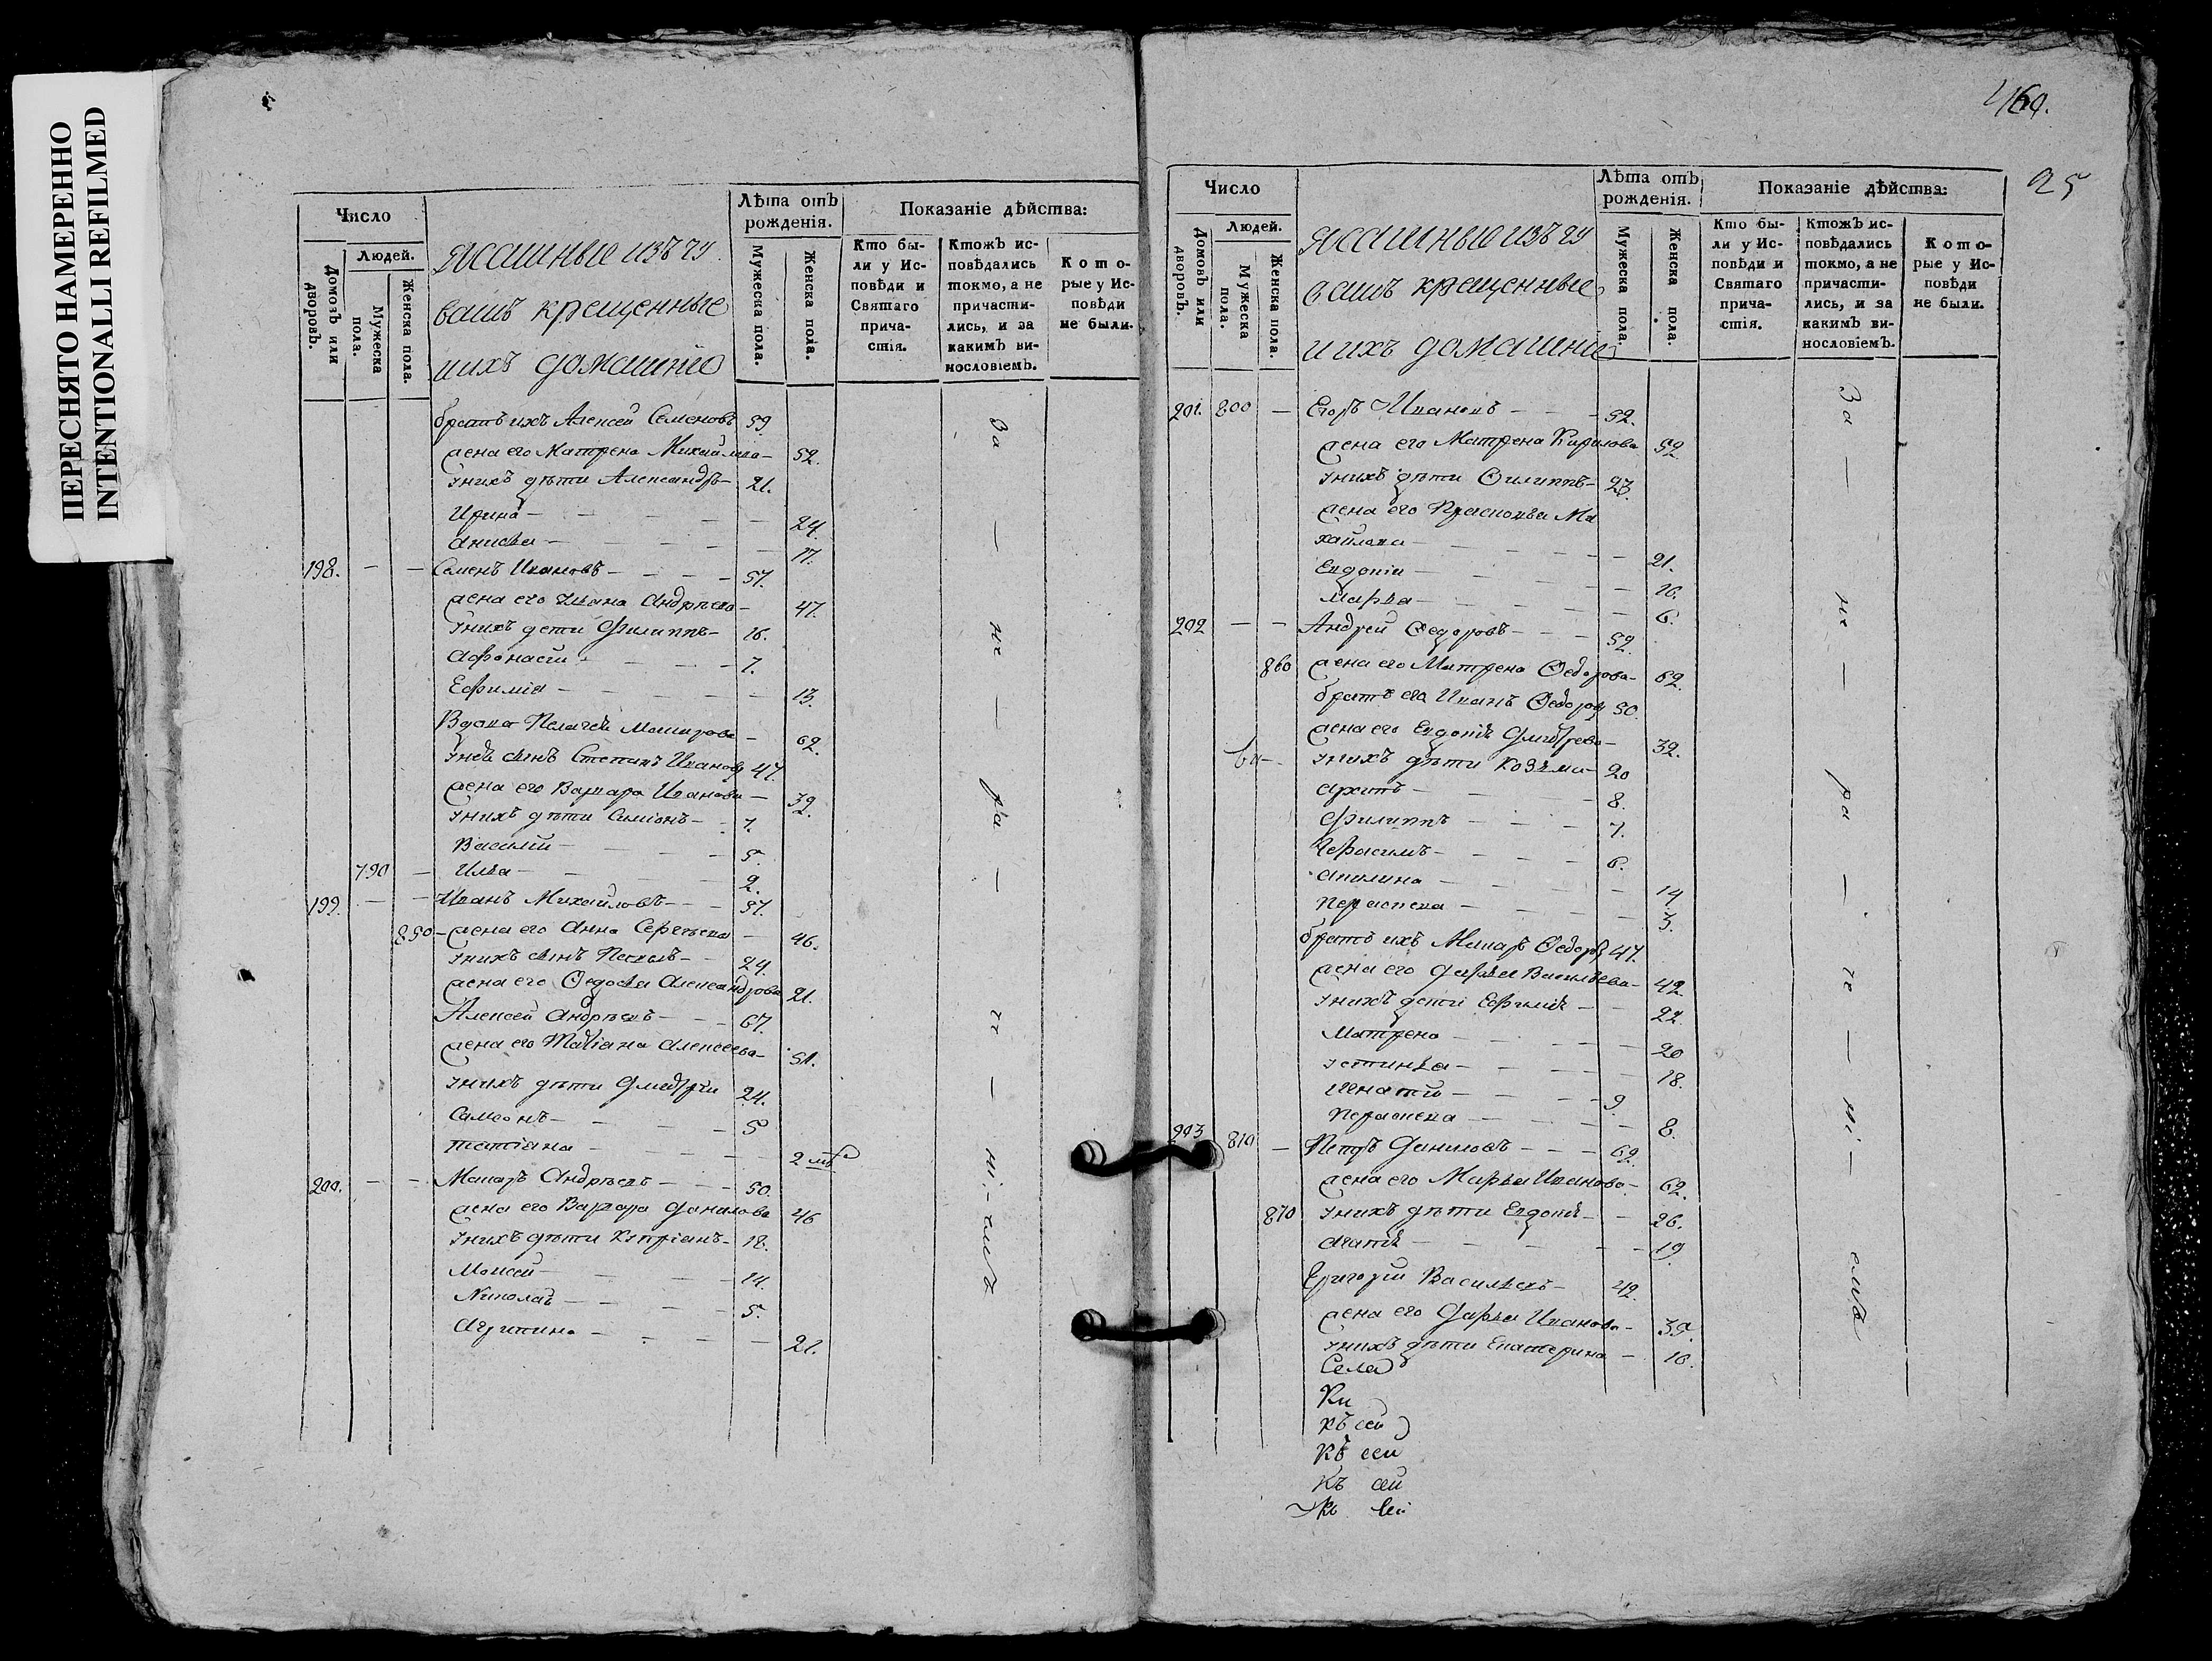 ПЕРЕСНЯТО НАМЕРЕННО
INTENTIONALLI REFILMED
Число
Людей.
Домовъ или дворовъ.
Мужеска пола.
Женска пола.
Ясашные изъ чу
вашъ крещенные
и ихъ домашніе
Лѣта отъ рожденія.
Мужеска пола.
Женска пола.
Показаніе дѣйства:
Кто бы-
ли у Ис-
повѣди и
Святаго
прича-
стія.
Ктожъ ис-
повѣдались
токмо, а не
причасти-
лись, и за
какимъ ви-
нословіемъ.
Кото-
рые у Ис-
повѣди
не были.
братъ ихъ Алексей Семеновъ 59.
жена его Матрена Михайлова 52.
у нихъ дѣти Александръ 21.
Ирина 24.
Анисья 17.
198. Семенъ Ивановъ 57.
жена его Андрѣева 47.
у нихъ дети Филиппъ 16.
Афонасій 7.
Ефимія 13.
Вдова Пелагея 62.
у неѣ сынъ Степанъ Ивановъ 47.
жена его Варвара Иванова 39.
у нихъ дѣти Симіонъ 7.
Василій 5.
790 Илья 2.
199. Иванъ Михайловъ 57.
850 жена его Анна Сергѣева 46.
у нихъ сынъ 24.
жена его Федосья Александрова 21.
Алексей Андрѣевъ 67.
жена его Татіана Алексеева 51.
у нихъ дѣти Дмитрій 24.
Самсонъ 5
татіана 2
200. Макаръ Андрѣевъ 50.
жена его Варвара Данилова 46
у нихъ дѣти Кипріанъ 18.
Моисей 14.
Николай 5.
Агрипина 21.
За — не — ра — че — ні — емъ
460.
25
Число
Людей.
Домовъ или дворовъ.
Мужеска пола.
Женска пола.
Ясашные изъ чу
вашъ крещенные
и ихъ домашніе
Лѣта отъ рожденія.
Мужеска пола.
Женска пола.
Показаніе дѣйства:
Кто бы-
ли у Ис-
повѣди и
Святаго
прича-
стія.
Ктожъ ис-
повѣдались
токмо, а не
причасти-
лись, и за
какимъ ви-
нословіемъ.
Кото-
рые у Ис-
повѣди
не были.
201. 800 Егоръ Ивановъ 52.
жена его Матрена Кирилова 52.
у нихъ дѣти Филиппъ 23.
жена его Прасковья Ми
хайлова 21.
Евдокія 10.
Марья 6.
202 Андрей Федоровъ 52.
860 жена его Матрена Федорова 62.
братъ его Иванъ Федоровъ 50.
жена его Евдокія Дмитрева 32.
у нихъ дѣти Козьма 20
Архипъ 8.
Филиппъ 7.
Герасимъ 6.
Акилина 14
Параскева 3.
братъ ихъ Макаръ Федоровъ 47.
жена его Дарья Васильева 42.
у нихъ дети Ефимія 22.
Матрена 20
Устинья 18.
Игнатій 9.
Параскева 8.
203 810 Петръ Даниловъ 62.
жена его Марья Иванова 62.
870 у нихъ дѣти Евдокія 26.
Агапія 19.
Григорій Васильевъ 42.
жена его Дарья Иванова 39.
у нихъ дѣти Екатерина 10.
За — не — ра — че — ні — емъ
Села
Ки
къ сей
Къ сей
Къ сей